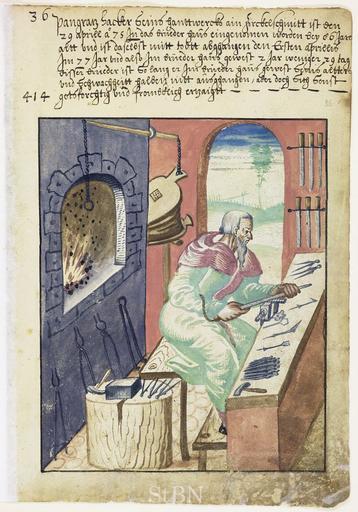 36 Pangratz Hacker Seins Handtwercks ain Zirckelschmitt ist den
29 aprile a 75 In das bruder Hauß eingenomen worden bey 66 Jare
altt und ist daselbst mitt todtt abgangen den Ersten aprilis
Im 77 Jar und also Im bruder Hauß gewest 2 Jar weniger 29 tag
Disser bruder ist So lang er Im bruder Hauß gewest Seins altters
und Schwachheitt halben nitt ausgangen, aber doch Sich Sonst
414 gottsforchtig und frombclich erzaigtt
86
StBN